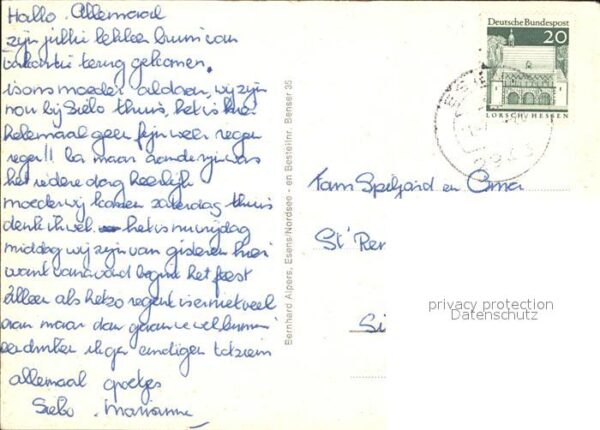 Hallo Allemaal
zijn jullie lekker bruin van
vakantie terug gekomen.
is ons moeder al daar, wij zijn
nou bij Siebo thuis, het is hier
helemaal geen fijn weer regen
regen!! ja maar aan de
het iedere dag heerlijk
moeder wij komen zaterdag thuis
denk ik wel. het is nu vrijdag
middag wij zijn van gisteren hier
want vanavond begint het feest
alleen als het zo regent is er niet veel
aan maar dan gaan we wel binnen
een eindigen
allemaal groetjes
Siebo . Marianne
Deutsche Bundespost
20
LORSCH/HESSEN
2943
Bernhard Alpers, Esens/Nordsee - en Bestellnr. Benser 35
Fam Speljard en Oma
St' Per
Si
privacy protection
Datenschutz